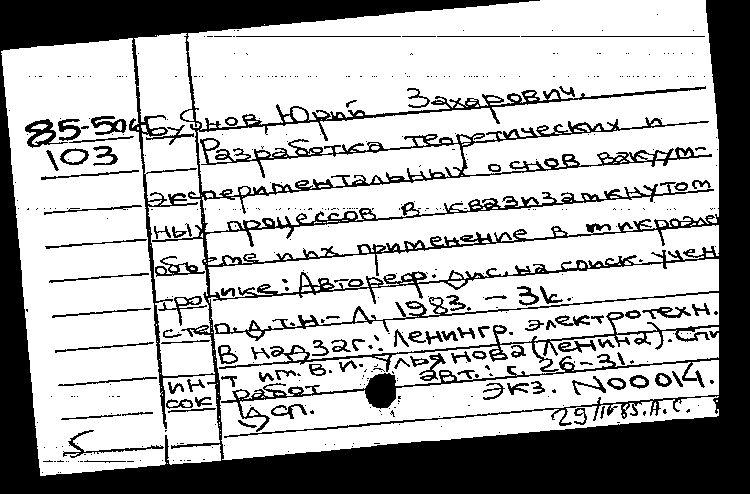 85-504 Бубнов, Юрий Захарович.
103 Разработка теоретических и
экспериментальных основ вакуум-
ных процессов в квазизамкнутом
объеме и их применение в микроэлек
тронике: Автореф. дис. на соиск. учен
степ. д.т.н.- Л. 1983. - 31с.
В надзаг.: Ленингр. электротехн.
ин-т им. В. И. Ульянова (Ленина). Спи
сок работ авт.: с. 26-31.
Дсп. экз. N00014.
29/IV 85. А.С.
5